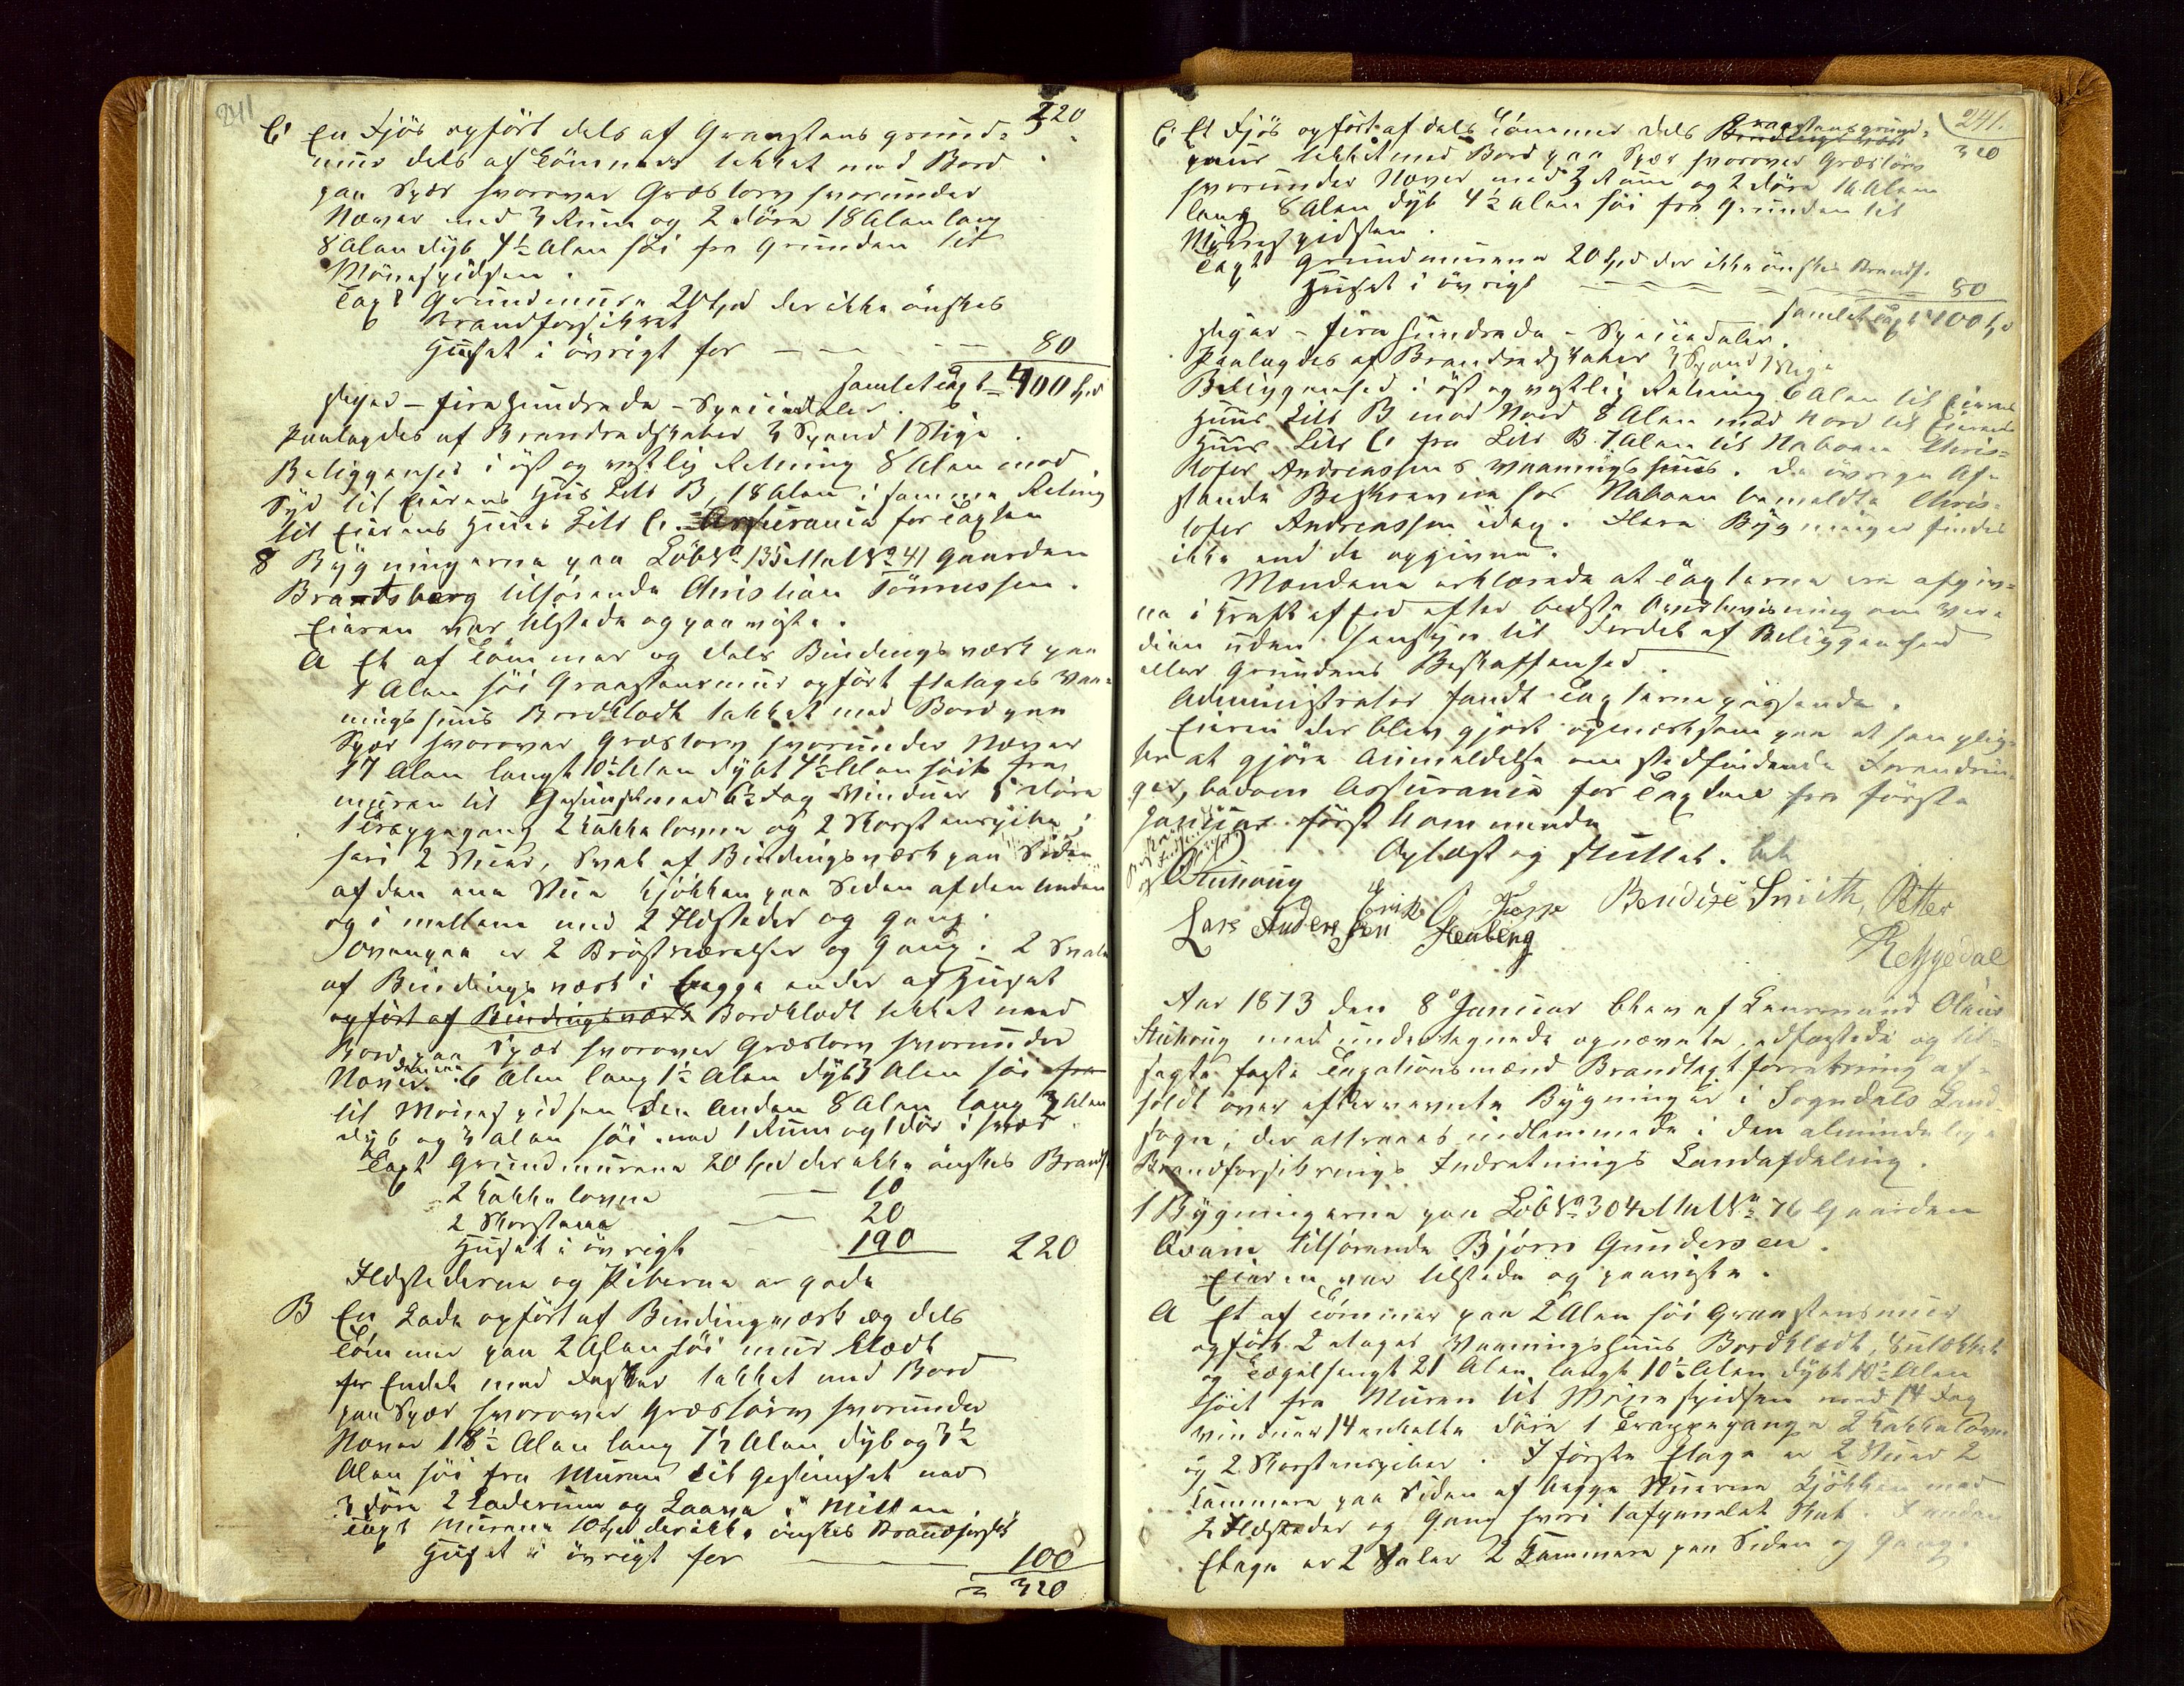 241
320
C. En Fjös opfört dels af Graastens grund-
muur dels af Tömmer tækket med Bord
paa Spær hvorover Græstorv hvorunder
Næver med 3 Rum og 2 Döre 18 Alen lang
8 Alen dyb 4½ Alen höi fra Grunden til
Mönespidsen.
Taxt Grundmuren 20 Spd der ikke önskes
Brandforsikret
Huset i övrigt for — — — 80
Samlet Taxt = 400 Spd
siger — fire hundrede — Speciedaler.
Paalagdes af Brandredskaber 3 Spand 1 Stige.
Beliggenhed i öst og vestlig Retning 8 Alen mod
Syd til Eierens Huus Litr B, 18 Alen i samme Retning
til Eierens Huus Litr C. Assurance for Taxten
8 Bygningerne paa Löb No 135 Mat No 41 Gaarden
Brandsberg tilhörende Christian Tönnessen.
Eieren var tilstede og paaviste.
A Et af Tömmer og dels Bindingsværk paa
1 Alen höi Graastensmuur opfört Etetages Vaa-
ningshuus Bordklædt tækket med Bord paa
Spær hvorover Græstorv hvorunder Næver
17 Alen langt 10½ Alen dybt 4½ Alen höit fra
muren til Gesimset med 6½ Fag Vinduer 5 Döre
1 Trappegang 2 Kakkelovne og 2 Skorstenspiber;
heri 2 Stuer, Sval af Bindingsværk paa Siden
af den ene Stue Kjökken paa Siden af den anden
og i mellem med 2 Ildsteder og Gang.
Ovenpaa er 2 Bröstværelser og Gang. 2 Svale
af Bindingsværk i begge ender af Huset
opfört af Bindingsværk Bordklædt tækket med
Bord paa Spær hvorover Græstorv hvorunder
Næver. den ene 6 Alen lang 1½ Alen dyb 3 Alen höi fra
til Mönespidsen den anden 8 Alen lang 3 Alen
dyb og 3 Alen höi med 1 Rum og 1 Dör i hver
Taxt Grundmuren 20 Spd der ikke önskes Brandf.
2 Kakkelovne — 10
2 Skorstene — 20
Huset i övrigt 190 220
Ildstederne og Piberne er gode
B En Lade opfört af Bindingsværk og dels
Tömmer paa 2 Alen höi muur klædt
for Enden med Fjeler tækket med Bord
paa Spær hvorover Græstörv hvorunder
Næver 18½ Alen lang 7½ Alen dyb og 3½
Alen höi fra Muren til Gesimset med
3 Döre 2 Laderum og Laave i Mitten.
Taxt Muren 10 Spd der ikke önskes Brandforsikret
Huset i övrigt for — 100
= 320
241.
320
C. Et Fjös opfört af dels Tömmer dels Bindingsværk Graastensgrund-
muur tækket med Bord paa Spær hvorover Græstörv
hvorunder Næver med 3 Rum og 2 Döre 16 Alen
lang 8 Alen dyb 4½ Alen höi fra Grunden til
Mönespidsen.
Taxt Grundmurene 20 Spd der ikke önskes Brandf.
Huset i övrigt 80
Samlet Taxt 400 Spd
siger — fire hundrede — Speciedaler.
Paalagdes af Brandredskaber 3 Spand 1 Stige
Beliggenhed i öst og vestlig Retning 6 Alen til Eierens
Huus Litr B mod Nord 8 Alen mod Nord til Eierens
Huus Litr C fra Litr B 7 Alen til Naboen Chris-
tofer Andreassens Vaaningshuus. De övrige Af-
stande Beskreven hos Naboen bemeldte Chris-
tofer Andreassen idag. Flere Bygninger findes
ikke end de opgivne.
Mændene erklærede at Taxterne ere afgiv-
ne i Kraft af Eed efter bedste Overbevisning om Vær-
dien uden Hensyn til Fordel af Beliggenhed
eller Grundens Beskaffenhed.
Administrator fandt Taxterne passende.
Eieren der blev gjort opmærksom paa at han plig-
ter at gjöre Anmeldelse om stedfindende Forandrin-
ger, bedom Assurance for Taxten fra förste
Januar först kommende
Oplæst og sluttet.
Stuhoug
Lars Anderssen Stenberg Bendixe Smith, Petter
Refsgedal
Aar 1873 den 8de Januar blev af Lensmand Olaus
Stuhoug med undertegnede opnævnte, edfæstede og til-
sagte faste Taxationsmænd Brandtaxtforretning af-
holdt over efternevnte Bygninger i Sogndals Land-
sogn, der attraaes indlemmede i den almindelige
Brandforsikrings Indretnings Landafdeling.
1 Bygningerne paa Löb No 304 Mat No 76 Gaarden
Aavane tilhörende Björn Gundersen.
Eieren var tilstede og paaviste.
A Et af Tömmer paa 2 Alen höi Graastensmuur
opfört 2 etages Vaaningshuus Bordklædt,
og Tægelhængt 21 Alen langt 10½ Alen dybt 10½ Alen
höit fra Muren til Mönespidsen med 14 Fag
vinduer 14 enkelte Döre 1 Trappegange 2 Kakkelovne
og 2 Skorstenspiber. I förste Etage er 2 Stuer 2
Kammere paa Siden af begge Stuerne Kjökken med
2 Ildsteder og Gang hvori 1 afpanelet Rum. I anden
Etage er 2 Saler 2 Kammere paa Siden og Gang.